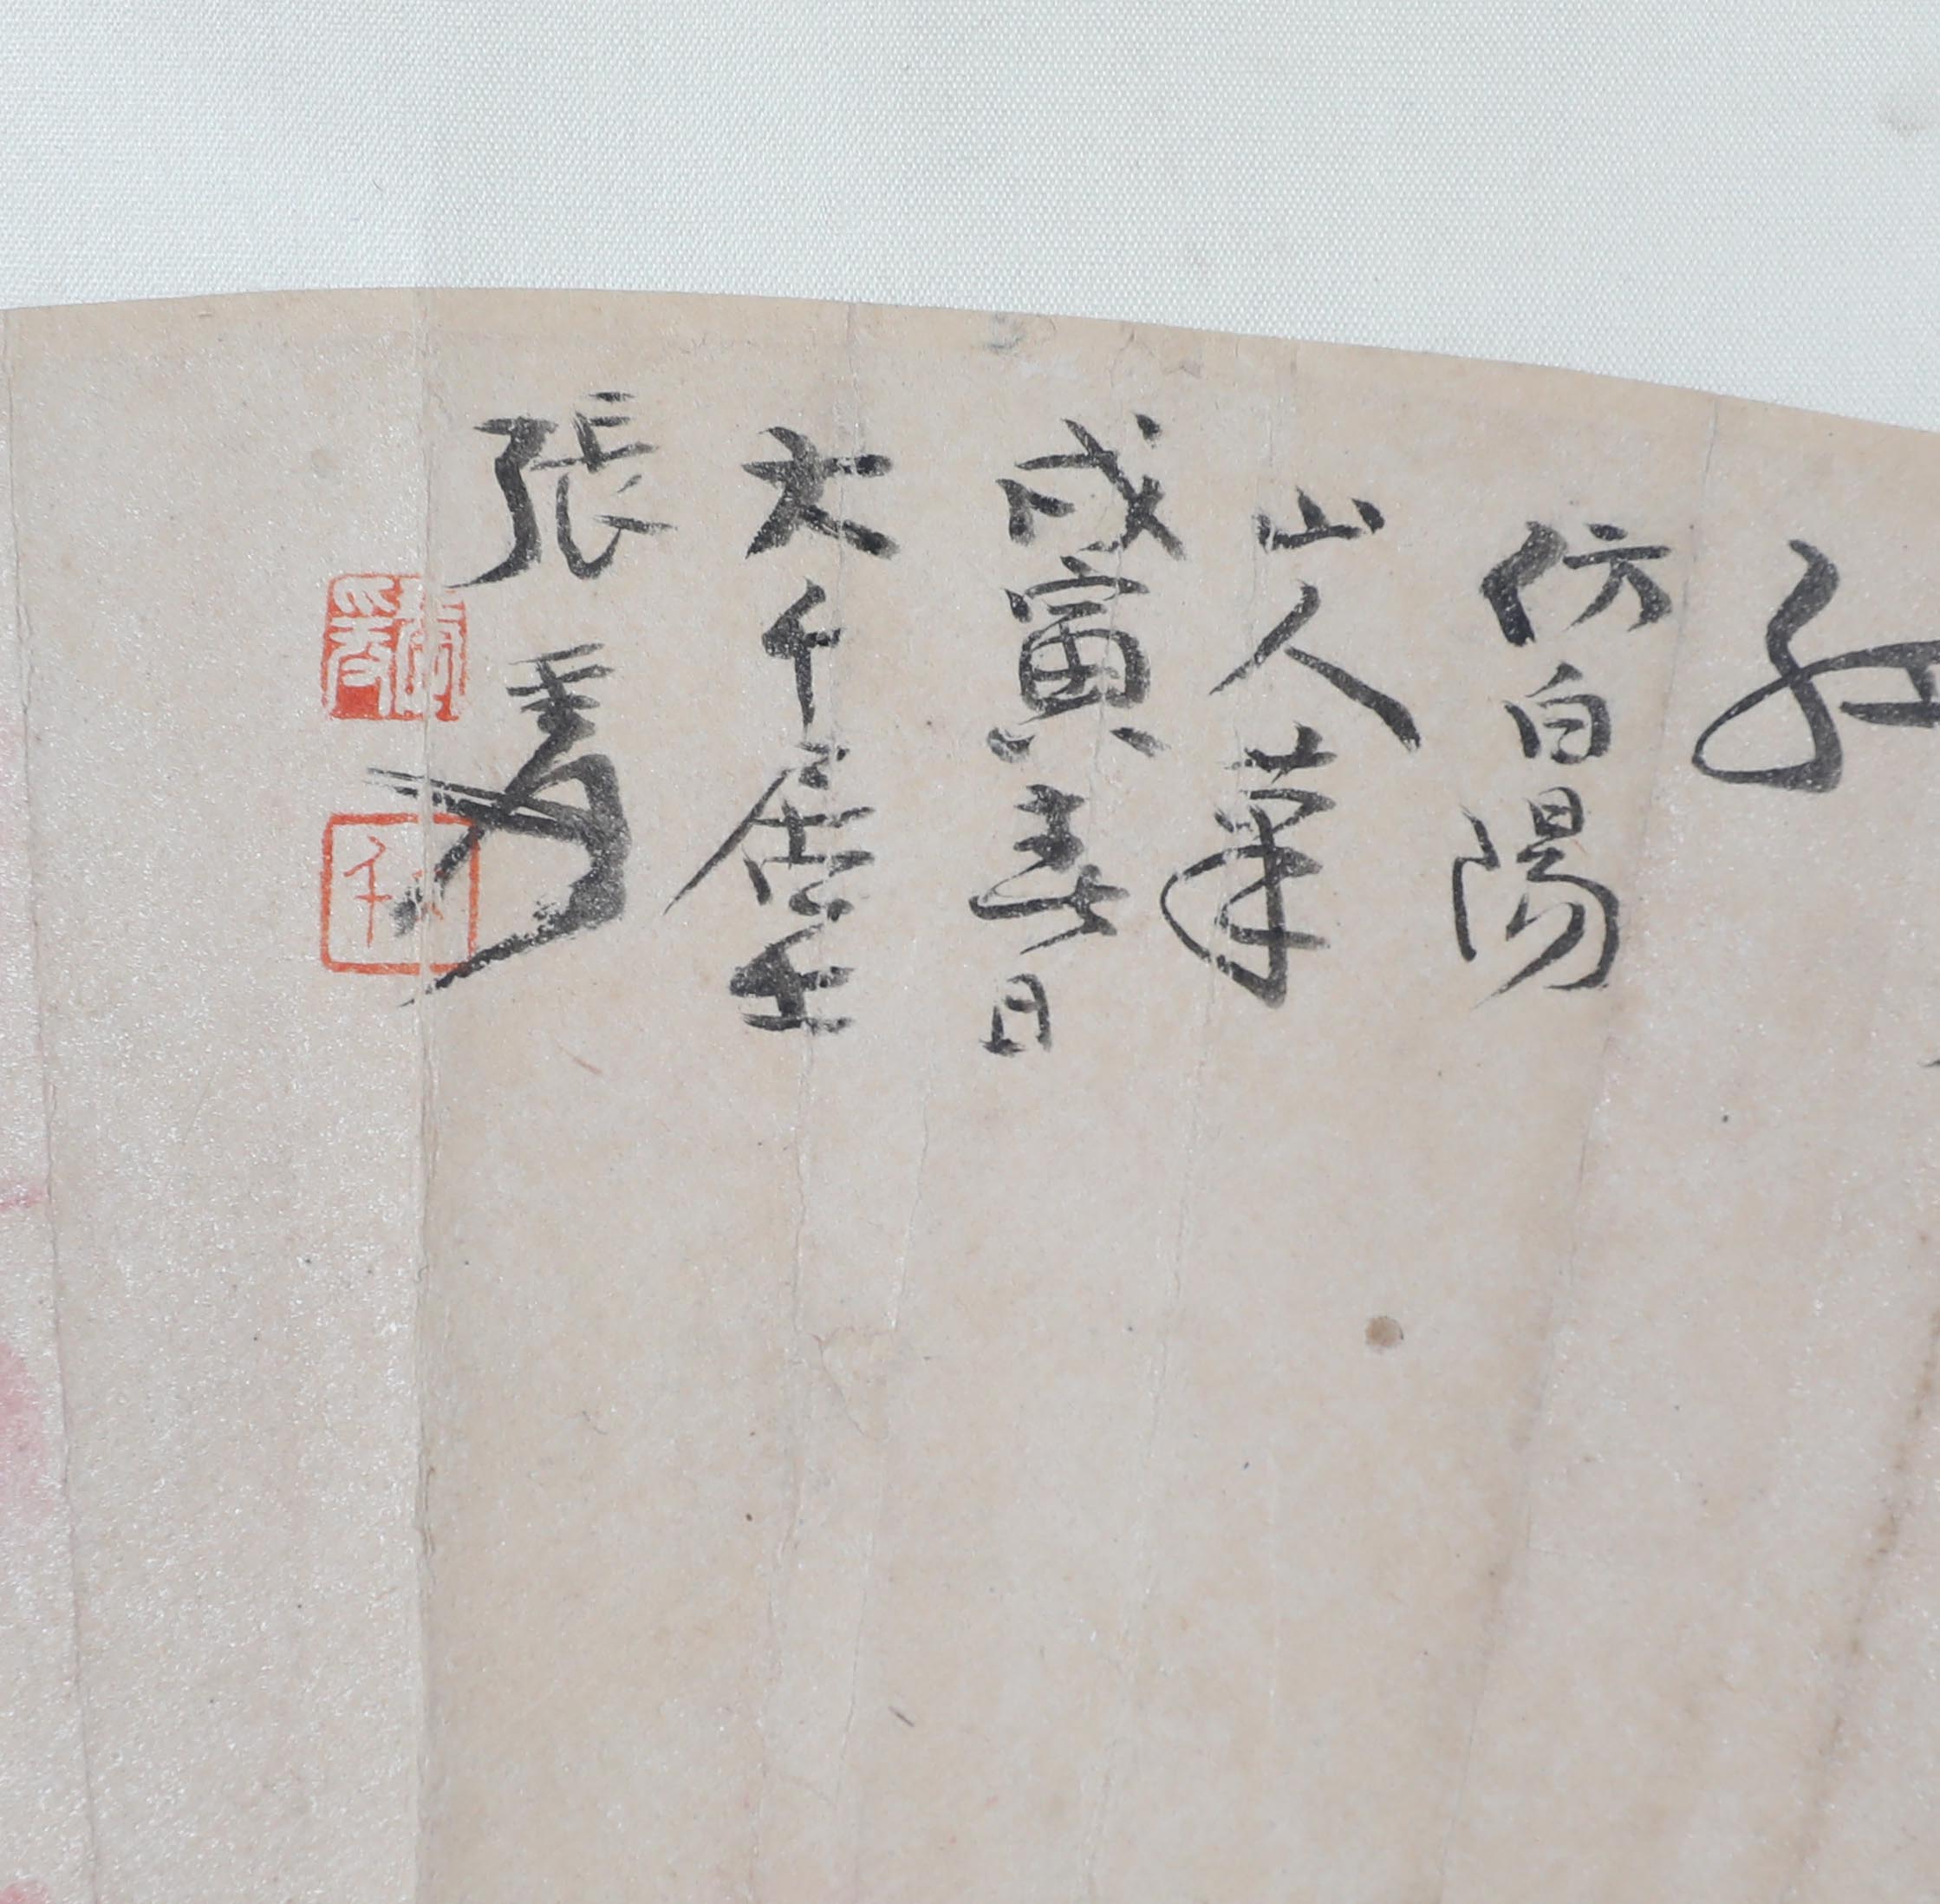 紅
仿白陽
山人筆
戊寅春日
大千居士
張爰